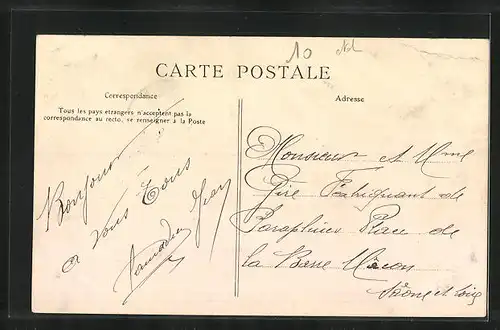 10
CARTE POSTALE
Correspondance
Adresse
Tous les pays étrangers n'acceptent pas la
correspondance au recto, se renseigner à la Poste
Bonjour
a vous Tous
Monsieur et Mme
Gire Fabriquant de
Parapluies Place de
la Barre Mâcon
Saône et Loire